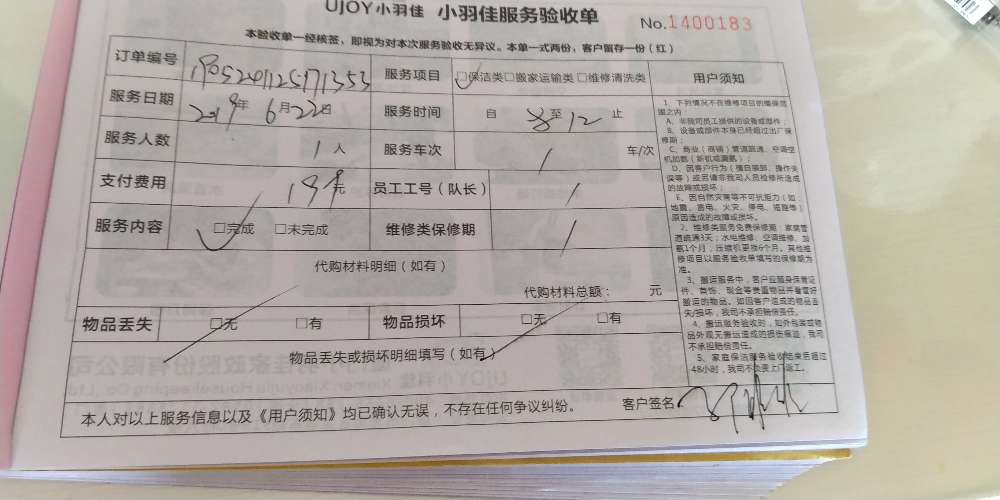 UJOY小羽佳 小羽佳服务验收单
No.1400183
本验收单一经核签，即视为对本次服务验收无异议。本单一式两份，客户留存一份（红）
订单编号 服务项目 □保洁类□搬家运输类□维修清洗类 用户须知
服务日期 2019年6月22日 服务时间 自 8 至 12 止
服务人数 1人 服务车次 / 车/次
支付费用 199元 员工工号（队长） /
服务内容 □完成 □未完成 维修类保修期 /
代购材料明细（如有）
代购材料总额： 元
物品丢失 □无 □有 物品损坏 □无 □有
物品丢失或损坏明细填写（如有）
本人对以上服务信息以及《用户须知》均已确认无误，不存在任何争议纠纷。 客户签名：
1、下列情况不在维修项目的维保范
围之内：
A、非我司员工提供的设备或部件；
B、设备或部件本身已经超过出厂保
修期；
C、商业（商铺）管道疏通、空调空
机加氨（新机或漏氨）；
D、因客户行为（擅自装卸、操作失
误等）或另请非我司人员检修所造成
的故障或损坏；
E、因自然灾害等不可抗拒力（如：
地震、雷电、火灾、停电、返潮等）
原因造成的故障或损坏。
2、维修类服务免费保修期：家庭管
道疏通3天；水电维修、空调维修、加
氨1个月；压缩机更换6个月。其他维
修项目以服务验收单填写的保修期为
准。
3、搬运服务中，客户应随身保管证
件、首饰、现金等贵重物品并看管好
搬运的物品。如因客户造成的物品丢
失/损坏，我司不承担赔偿责任。
4、搬运服务验收时，如外包装或物
品外观无搬运造成的损伤痕迹，我司
不承担赔偿责任。
5、家庭保洁服务验收结束后超过
48小时，我司不负责上门返工。